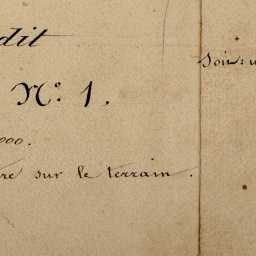 dit
N.º 1.
000.
re sur le terrain.